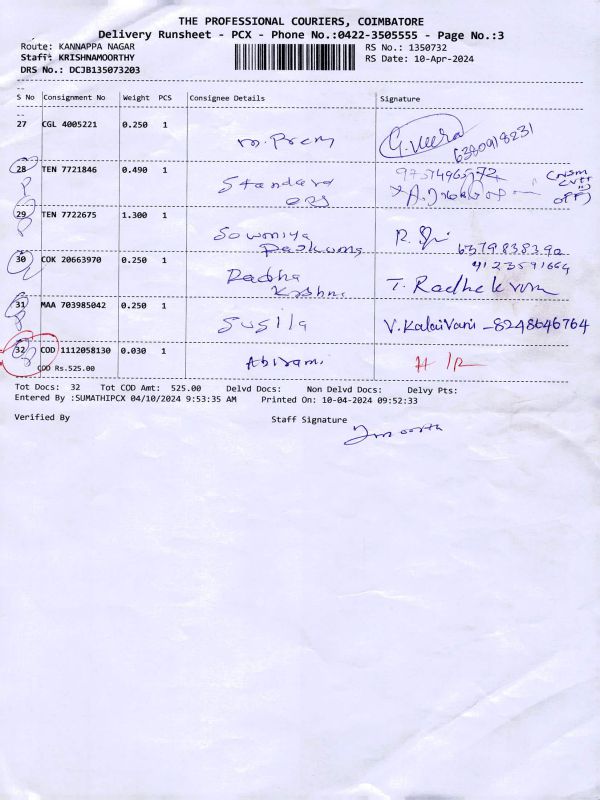 THE PROFESSIONAL COURIERS, COIMBATORE
Delivery Runsheet - PCX - Phone No.:0422-3505555 - Page No.:3
Route: KANNAPPA NAGAR
RS No.: 1350732
Staff: KRISHNAMOORTHY
RS Date: 10-Apr-2024
DRS No.: DCJB135073203
S No Consignment No Weight PCS Consignee Details Signature
27 CGL 4005221 0.250 1
m. Prem G. Veera 6380918231
28 TEN 7721846 0.490 1
Standard
29 TEN 7722675 1.300 1
Sowmiya
6379838390
30 COK 20663970 0.250 1
9123591664
Radha T. Radhakrishn
31 MAA 703985042 0.250 1
Susila V. Kalaivani - 8248646764
32 COD 1112058130 0.030 1
Abirami
COD Rs.525.00
Tot Docs: 32 Tot COD Amt: 525.00 Delvd Docs: Non Delvd Docs: Delvy Pts:
Entered By :SUMATHIPCX 04/10/2024 9:53:35 AM Printed On: 10-04-2024 09:52:33
Verified By Staff Signature